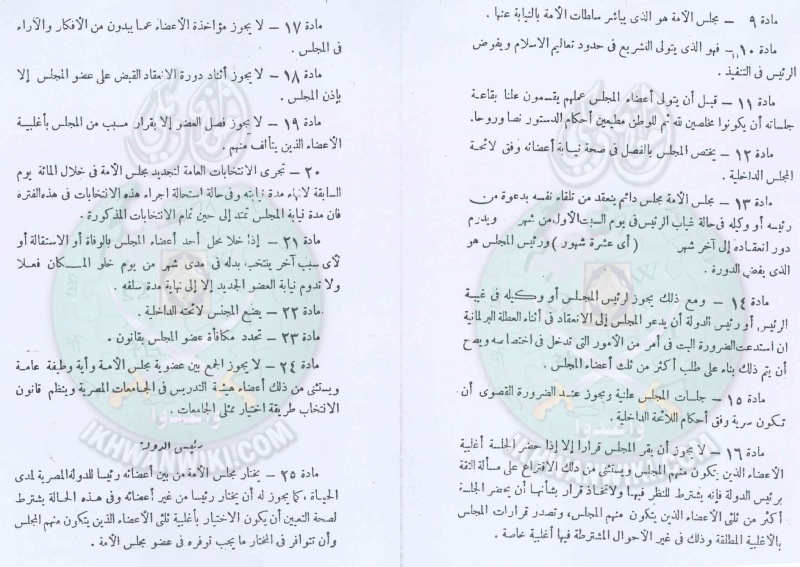 مادة ٩ – مجلس الأمة هو الذى يباشر سلطات الأمة بالنيابة عنها .
مادة ١٠ – فهو الذى يتولى التشريع فى حدود تعاليم الاسلام ويفوض
الرئيس فى التنفيذ .
مادة ١١ – قبل أن يتولى أعضاء المجلس عملهم يقسمون علنا بقاعة
جلساته أن يكونوا مخلصين لله ثم للوطن مطيعين أحكام الدستور نصا وروحا.
مادة ١٢ – يختص المجلس بالفصل فى صحة نيابة أعضائه وفق لائحة
المجلس الداخلية .
مادة ١٣ – مجلس الأمة مجلس دائم ينعقد من تلقاء نفسه بدعوة من
رئيسه أو وكيله فى حالة غياب الرئيس فى يوم السبت الأول من شهر ويدوم
دور انعقاده إلى آخر شهر ( أى عشرة شهور ) ورئيس المجلس هو
الذى يفض الدورة .
مادة ١٤ – ومع ذلك يجوز لرئيس المجلس أو وكيله فى غيبة
الرئيس أو رئيس الدولة أن يدعو المجلس إلى الانعقاد فى أثناء العطلة البرلمانية
ان استدعت الضرورة البت فى أمر من الأمور التى تدخل فى اختصاصه ويصح
أن يتم ذلك بناء على طلب أكثر من ثلث أعضاء المجلس .
مادة ١٥ – جلسات المجلس علنية ويجوز عند الضرورة القصوى أن
تكون سرية وفق أحكام اللائحة الداخلية .
مادة ١٦ – لا يجوز أن يقر المجلس قرارا إلا إذا حضر الجلسة أغلبية
الأعضاء الذين يتكون منهم المجلس ويستثنى من ذلك الاقتراع على مسألة الثقة
برئيس الدولة فإنه يشترط للنظر فيها ولاتخاذ قرار بشأنها أن يحضر الجلسة
أكثر من ثلثى الأعضاء الذين يتكون منهم المجلس، وتصدر قرارات المجلس
بالأغلبية المطلقة وذلك فى غير الأحوال المشترطة فيها أغلبية خاصة .
مادة ١٧ – لا يجوز مؤاخذة الأعضاء عما يبدون من الأفكار والآراء
فى المجلس .
مادة ١٨ – لا يجوز أثناء دورة الانعقاد القبض على عضو المجلس إلا
بإذن المجلس .
مادة ١٩ – لا يجوز فصل العضو إلا بقرار مسبب من المجلس بأغلبية
الأعضاء الذين يتألف منهم .
٢٠ – تجرى الانتخابات العامة لتجديد مجلس الأمة فى خلال المائة يوم
السابقة لانتهاء مدة نيابته وفى حالة استحالة اجراء هذه الانتخابات فى هذه الفتره
فان مدة نيابة المجلس تمتد إلى حين تمام الانتخابات المذكورة .
مادة ٢١ – إذا خلا محل أحد أعضاء المجلس بالوفاة أو الاستقالة أو
لأى سبب آخر ينتخب بدله فى مدى شهر من يوم خلو المكان فعلا
ولا تدوم نيابة العضو الجديد إلا إلى نهاية مدة سلفه .
مادة ٢٢ – يضع المجلس لائحته الداخلية .
مادة ٢٣ – تحدد مكافأة عضو المجلس بقانون .
مادة ٢٤ – لا يجوز الجمع بين عضوية مجلس الأمة وأية وظيفة عامة
ويستثنى من ذلك أعضاء هيئة التدريس فى الجامعات المصرية وينظم قانون
الانتخاب طريقة اختيار ممثلى الجامعات .
رئيس الدولة
مادة ٢٥ – يختار مجلس الأمة من بين أعضائه رئيسا للدولة المصرية لمدى
الحياة ، كما يجوز له أن يختار رئيسا من غير أعضائه وفى هذه الحالة يشترط
لصحة التعيين أن يكون الاختيار بأغلبية ثلثى الأعضاء الذين يتكون منهم المجلس
وأن تتوافر فى المختار ما يجب توفره فى عضو مجلس الأمة .
وأعدوا
IKHWANWIKI.COM
وأعدوا